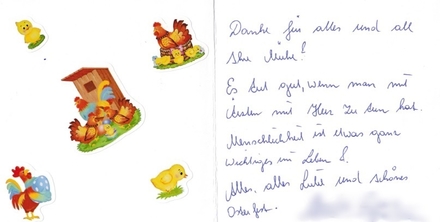 Danke für alles und all
Ihre Mühe!
Es tut gut, wenn man mit
Ärzten mit Herz zu tun hat.
Menschlichkeit ist etwas ganz
Wichtiges im Leben!
Alles, alles Gute und schönes
Osterfest.